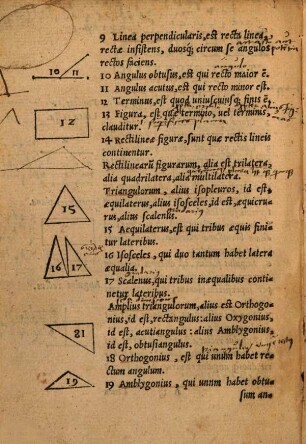 9 Linea perpendicularis, est recta linea
rectæ insistens, duosq; circum se angulos
rectos faciens.
10 Angulus obtusus, est qui recto maior ē.
11 Angulus acutus, est qui recto minor est.
12 Terminus, est quod uniuscuiusq; finis ē.
13 Figura, est quæ termino, uel terminis
clauditur.
14 Rectilineæ figuræ, sunt quæ rectis lineis
continentur.
Rectilinearū figurarum, alia est trilatera,
alia quadrilatera, alia multilatera.
Triangulorum, alius isopleuros, id est
æquilaterus, alius isosceles, id est, æquicru-
rus, alius scalenus.
15 Aequilaterus, est qui tribus æquis finí-
tur lateribus.
16 Isosceles, qui duo tantum habet latera
æqualia.
17 Scalenus, qui tribus inæqualibus conti-
netur lateribus.
Amplius triangulorum, alius est Orthogo-
nius, id est, rectangulus: alius Oxygonius,
id est, acutiangulus: alius Amblygonius,
id est, obtusiangulus.
18 Orthogonius, est qui unum habet re-
ctum angulum.
19 Amblygonius, qui unum habet obtu-
sum an-
10 11
12
15
16 17
18
19